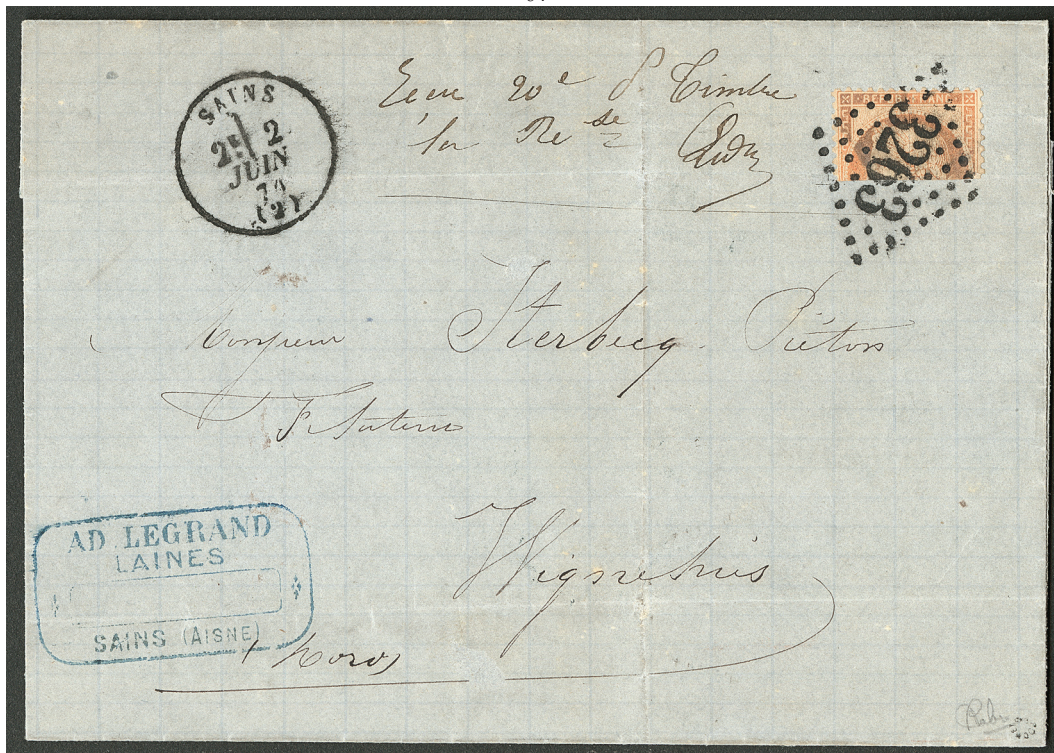 SAINS
2E 2
JUIN
74
(2)
20c
Timbre
REPUB FRANC
3263
Monsieur Sterbecq Piéton
Filateur
Wignehies
(Nord)
AD LEGRAND
LAINES
SAINS (AISNE)